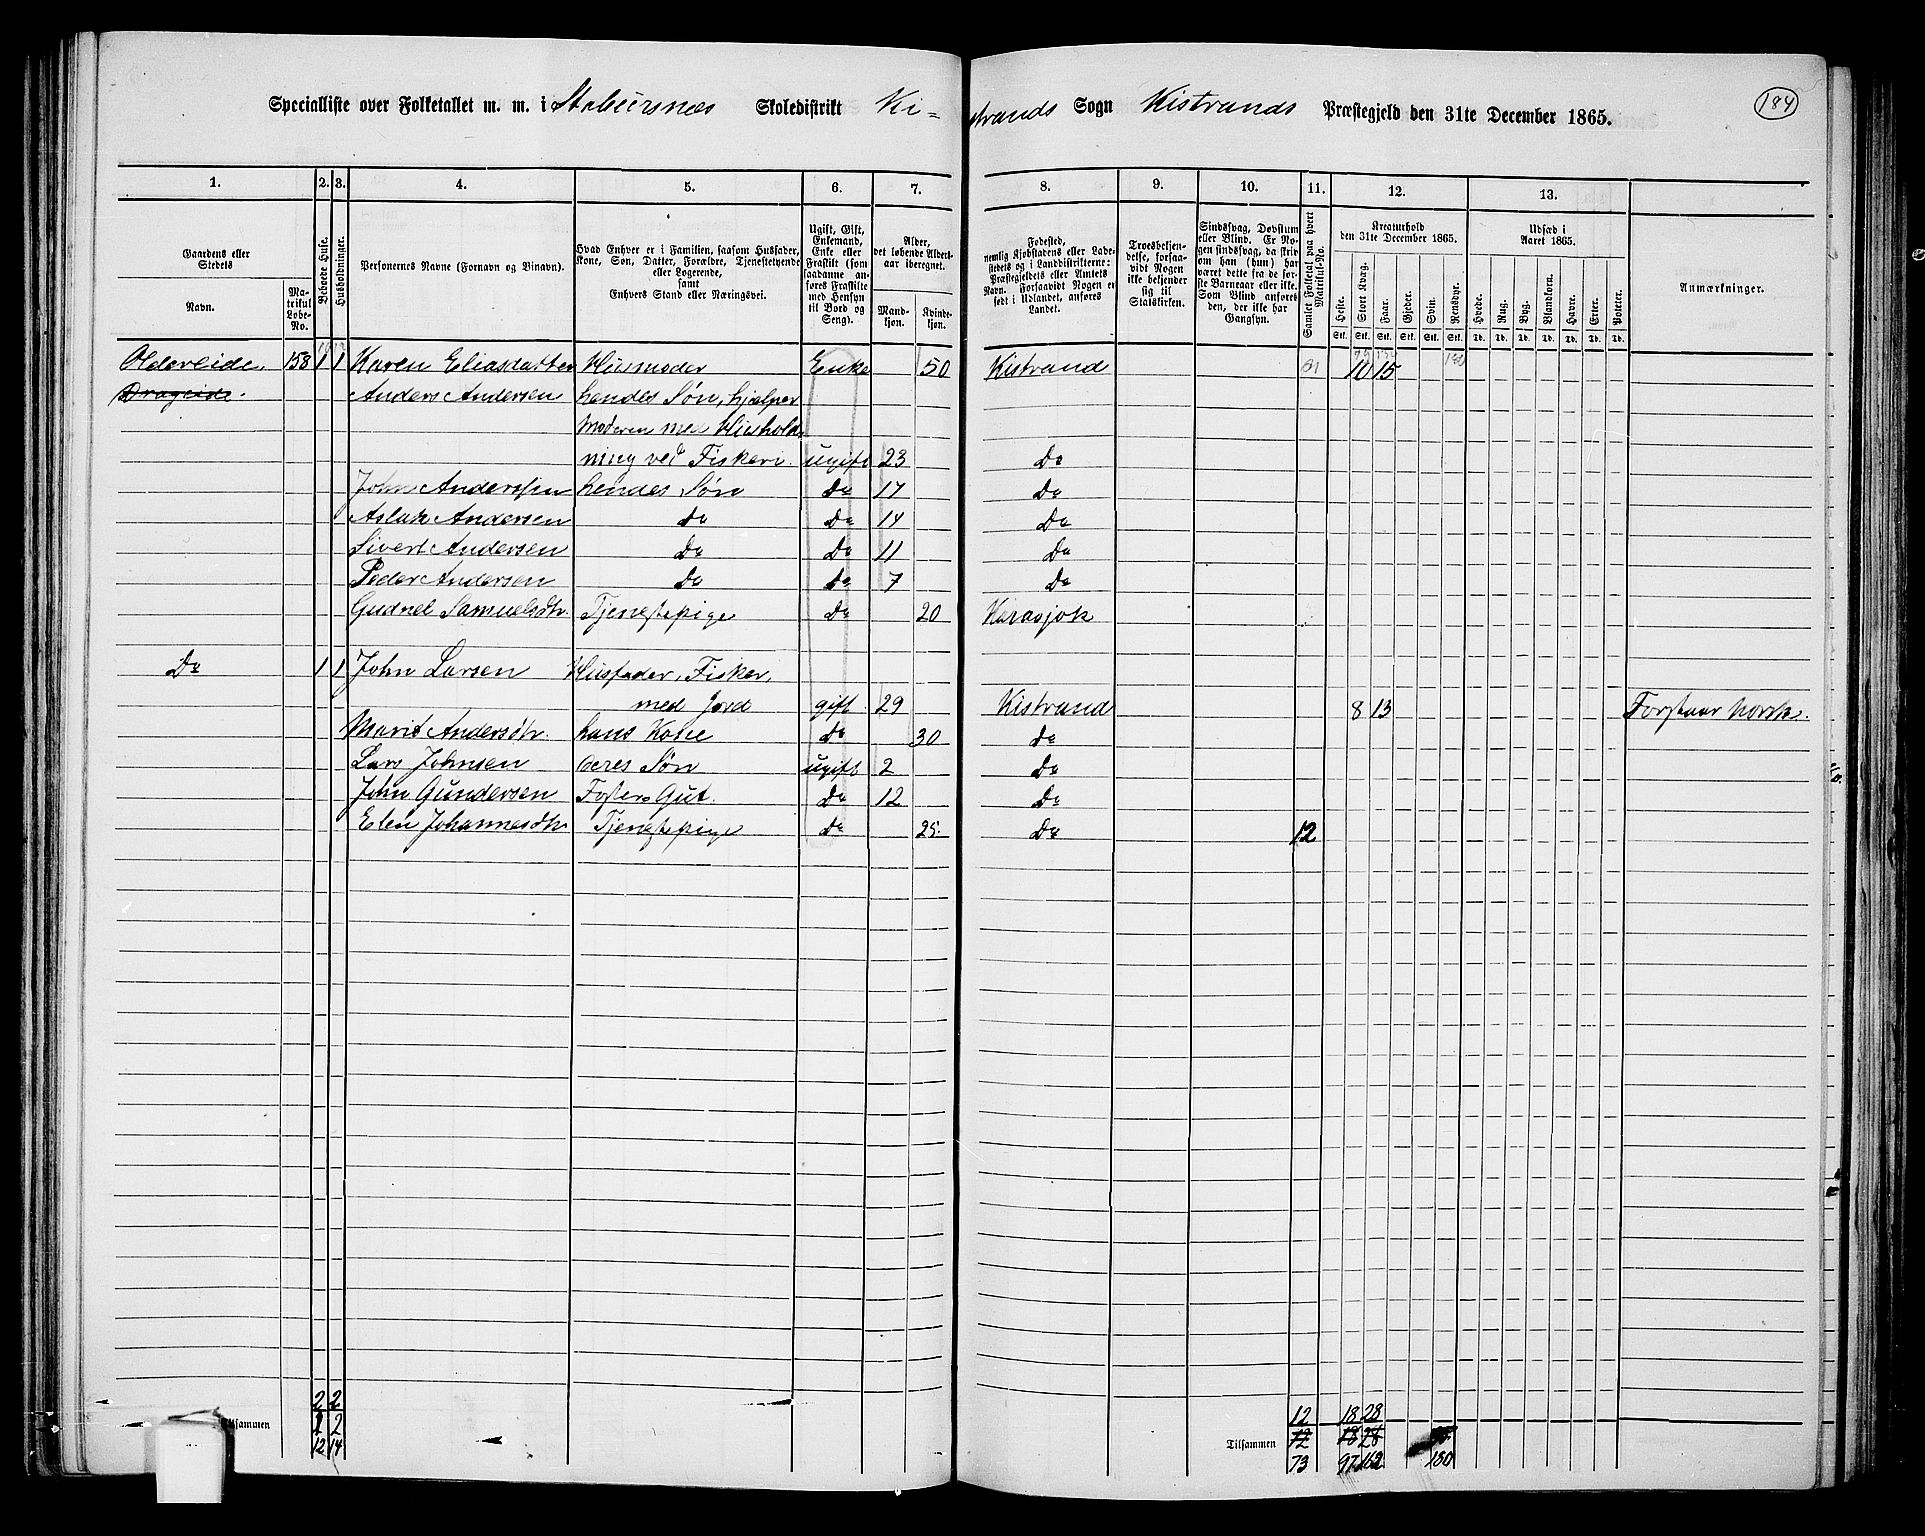 Specialliste over Folketallet m. m. i Stabursnæs Skoledistrikt Ki-strands Sogn Kistrands Præstegjeld den 31te December 1865.
184
1. 2. 3. 4. 5. 6. 7. 8. 9. 10. 11. 12. 13.
Gaardens eller Stedets
Navn.
Matrikul Løbe-No.
Beboede Huse.
Husholdninger.
Personernes Navne (Fornavn og Binavn).
Hvad Enhver er i Familien, saasom Husfader, Kone, Søn, Datter, Forældre, Tjenestetyende eller Logerende, samt Enhvers Stand eller Næringsvei.
Ugift, Gift, Enkemand, Enke eller Fraskilt (som saadanne anføres Fraskilte med Hensyn til Bord og Seng).
Alder, det løbende Aldersaar iberegnet.
Mandkjøn.
Kvindekjøn.
Fødested, nemlig Kjøbstadens eller Ladestedets og i Landdistrikterne: Præstegjeldets eller Amtets Navn. Forsaavidt Nogen er født i Udlandet, anføres Landet.
Troesbekjendelse, forsaavidt Nogen ikke bekjender sig til Statskirken.
Sindssvag, Døvstum eller Blind. Er Nogen sindssvag, da skrives om han (hun) har været dette fra de første Barneaar eller ikke. Som Blind anføres den, der ikke har Gangsyn.
Samlet Folketal paa hvert Matrikul-No.
Kreaturhold den 31te December 1865.
Heste. Stort Kvæg. Faar. Gjeder. Svin. Rensdyr.
Stk. Stk. Stk. Stk. Stk. Stk.
Udsæd i Aaret 1865.
Hvede. Rug. Byg. Blandkorn. Havre. Erter. Poteter.
Td. Td. Td. Td. Td. Td. Td.
Anmærkninger.
Oldereide 158 1 1 Karen Eliasdatter Husmoder Enke 50 Kistrand 61 10 15
Drageide. Anders Andersen hendes Søn, hjælper
Moderen med Hushold-
ning ved Fiskeri. ugift 23 Do
John Anderssen hendes Søn Do 17 Do
Aslak Andersen Do Do 14 Do
Sivert Andersen Do Do 11 Do
Peder Andersen Do Do 7 Do
Gudnel Samuelsdtr. Tjenestepige Do 20 Karasjok
Do 1 1 John Larsen Husfader, Fisker,
med Jord gift 29 Kistrand 8 13 Forstaar norsk.
Marit Andersdtr. hans Kone Do 30 Do
Lars Johnsen deres Søn ugift 2 Do
John Gundersen Foster Gut. Do 12 Do
Elen Johannesdtr Tjenestepige Do 25. Do 12
2 2 12 18 28
Tilsammen 2 2 Tilsammen 12 18 28
12 14 73 97 162 180